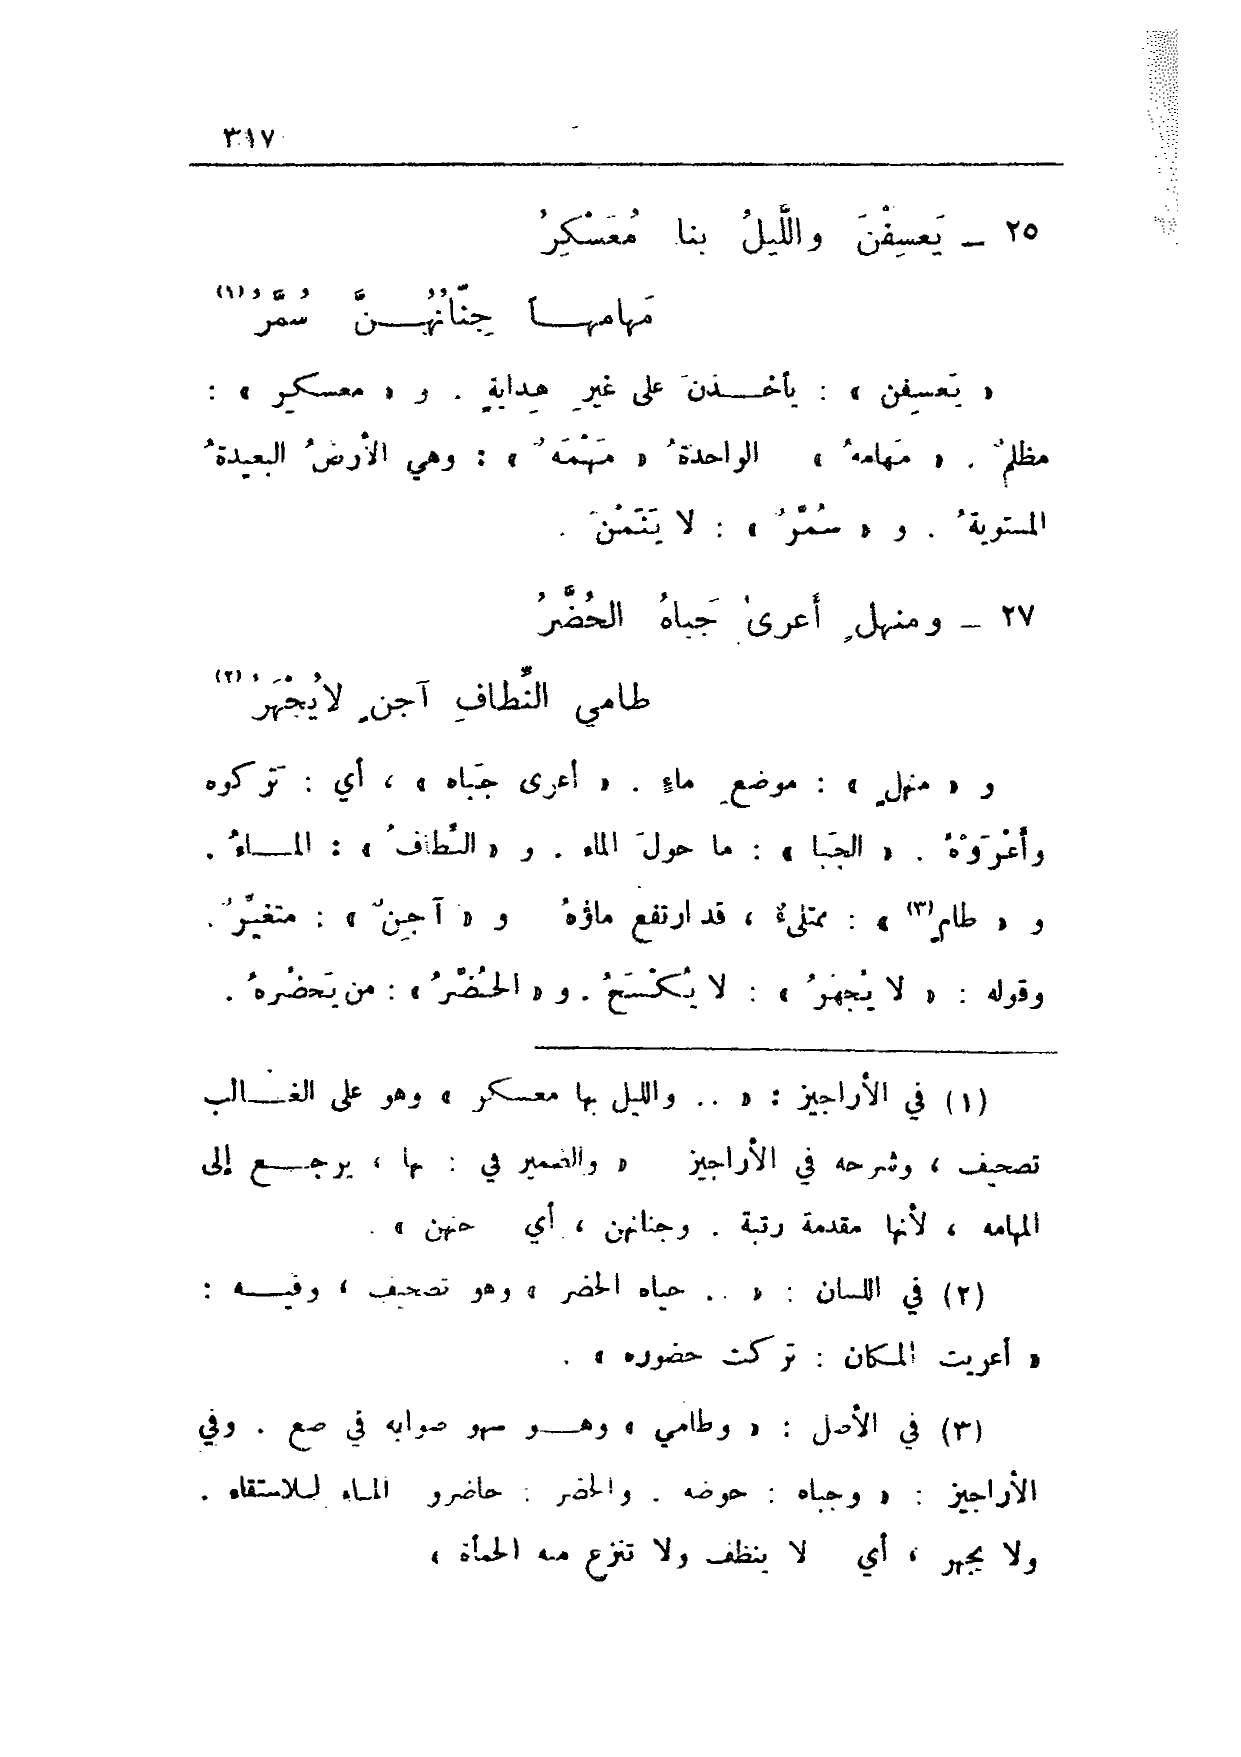 ٣١٧
٢٥ ــ يَعسِفْنَ واللَّيلُ بنا مُعَسْكِرُ
مَهامهــاً جِنّانُهُــنَّ سُمَّرُ(١)
« يَعسِفن » : يأخــذنَ على غيرِ هِدايةٍ . و « معسكِر » :
مظلمٌ . « مَهامهُ » الواحدةُ « مَهْمَهٌ » : وهي الأرضُ البعيدةُ
المستويةُ . و « سُمَّرٌ » : لا يَنَمْنَ .
٢٧ ــ ومنهلٍ أَعرىٰ جَباهُ الحُضَّرُ
طامي النِّطافِ آجنٍ لايُجْهَرُ(٢)
و « منهلٍ » : موضعِ ماءٍ . « أعرى جَباه » ، أي : تَركوه
وأَعْرَوْهُ . « الجَبا » : ما حولَ الماء . و « النِّطافُ » : المــاءُ .
و « طامٍ(٣) » : ممتلىءٌ ، قد ارتفع ماؤهُ و « آجِنٌ » : متغيّرٌ .
وقوله : « لا يُجهَرُ » : لا يُكْسَحُ . و « الحُضَّرُ » : من يَحضُرهُ .
(١) في الأراجيز : « .. والليل بها معسكر » وهو على الغــالب
تصحيف ، وشرحه في الأراجيز « والضمير في : بها ، يرجــع إلى
المهامه ، لأنها مقدمة رتبة . وجنانهن ، أي جنهن » .
(٢) في اللسان : « .. حباه الخضر » وهو تصحيف ، وفيــه :
« أعريت المكان : تركت حضوره » .
(٣) في الأصل : « وطامي » وهــو سهو صوابه في صع . وفي
الأراجيز : « وجباه : حوضه . والحضر : حاضرو الماء للاستقاء .
ولا يجهر ، أي لا ينظف ولا تنزع منه الحمأة »